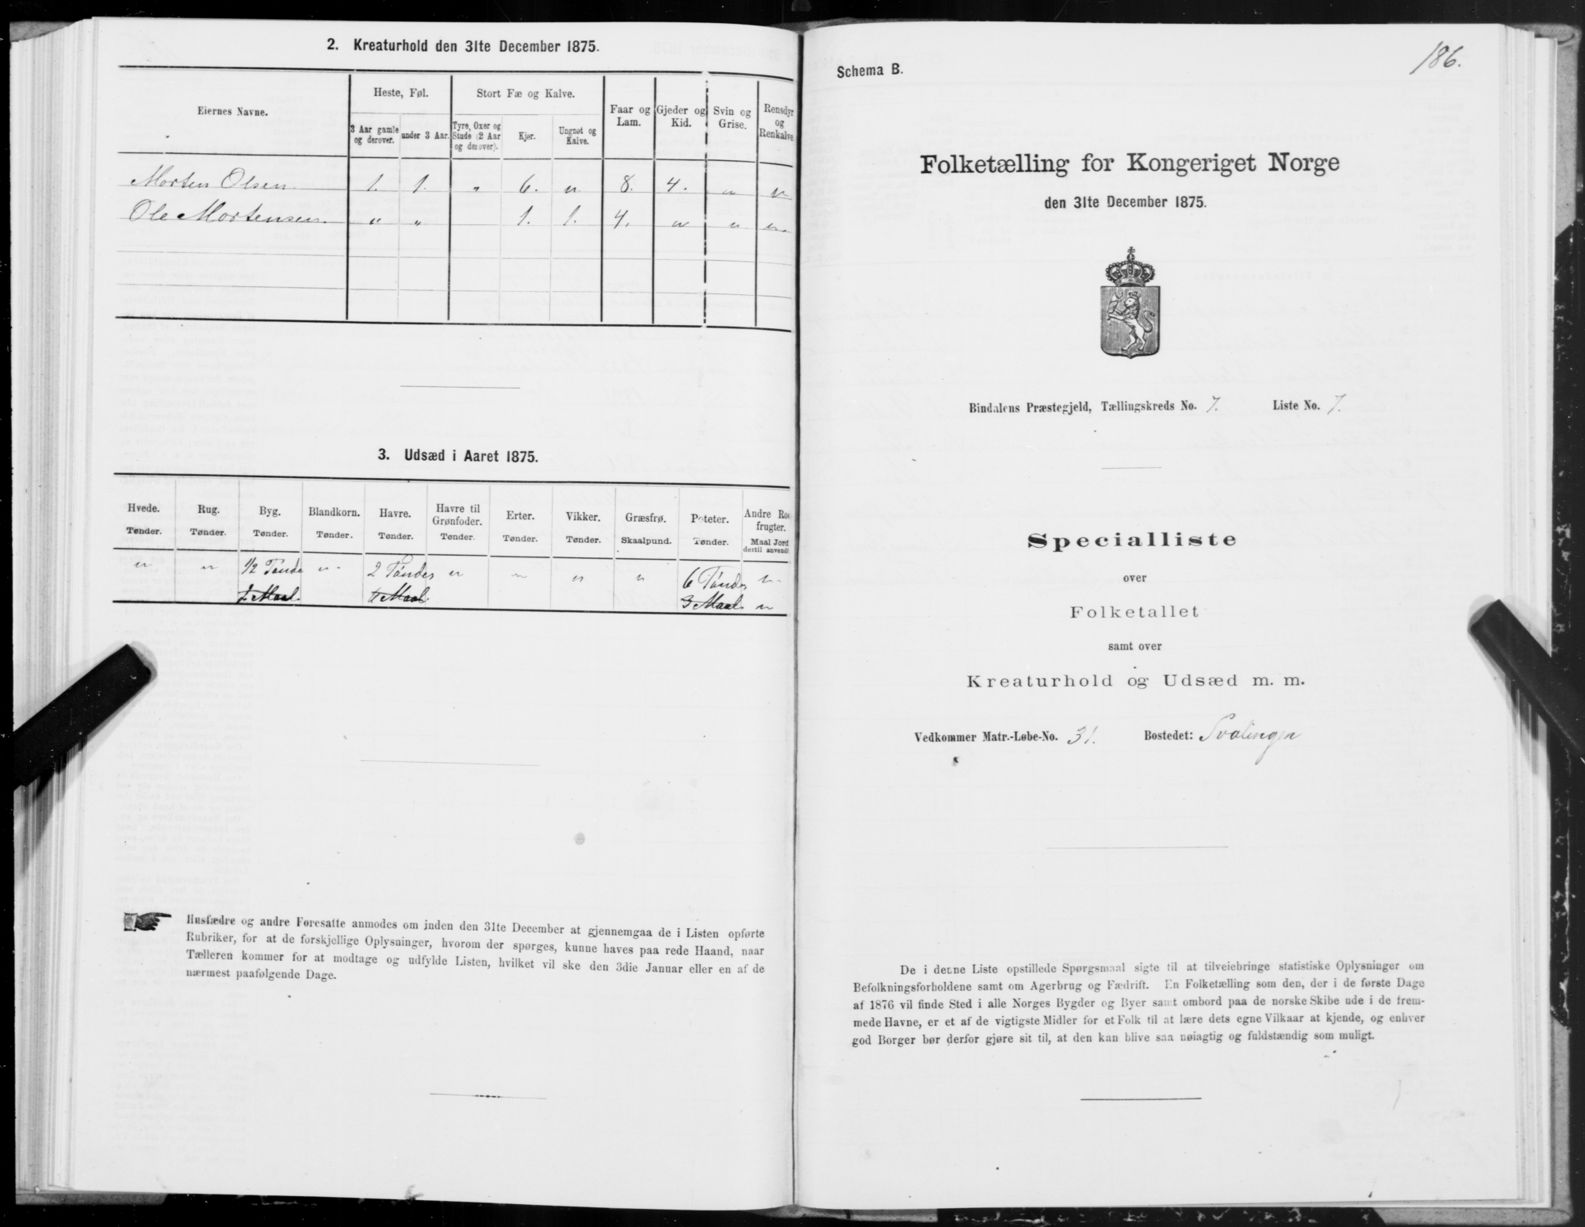 2. Kreaturhold den 31te December 1875.
Eiernes Navne.
Heste, Føl.
Stort Fæ og Kalve.
Faar og Lam.
Gjeder og Kid.
Svin og Grise.
Rensdyr og Renkalve
3 Aar gamle og derover.
under 3 Aar.
Tyre, Oxer og Stude (2 Aar og derover).
Kjør.
Ungnøt og Kalve.
Morten Olsen 1. 1. " 6. " 8. 4. " "
Ole Mortensen " " 1. 1. 4. " " "
3. Udsæd i Aaret 1875.
Hvede. Rug. Byg. Blandkorn. Havre. Havre til Grønfoder. Erter. Vikker. Græsfrø. Poteter. Andre Rodfrugter.
Tønder. Tønder. Tønder. Tønder. Tønder. Tønder. Tønder. Tønder. Skaalpund. Tønder. Maal Jord dertil anvendt
" " 1/2 Tønde " 2 Tønder " " " " 6 Tønder "
Maal. Maal. 3 Maal. "
Husfædre og andre Foresatte anmodes om inden den 31te December at gjennemgaa de i Listen opførte
Rubriker, for at de forskjellige Oplysninger, hvorom der spørges, kunne haves paa rede Haand, naar
Tælleren kommer for at modtage og udfylde Listen, hvilket vil ske den 3die Januar eller en af de
nærmest paafølgende Dage.
186.
Schema B.
Folketælling for Kongeriget Norge
den 31te December 1875.
Bindalens Præstegjeld, Tællingskreds No. 7. Liste No. 7.
Specialliste
over
Folketallet
samt over
Kreaturhold og Udsæd m. m.
Vedkommer Matr.-Løbe-No. 31. Bostedet: Svalingen
De i denne Liste opstillede Spørgsmaal sigte til at tilveiebringe statistiske Oplysninger om
Befolkningsforholdene samt om Agerbrug og Fædrift. En Folketælling som den, der i de første Dage
af 1876 vil finde Sted i alle Norges Bygder og Byer samt ombord paa de norske Skibe ude i de frem-
mede Havne, er et af de vigtigste Midler for et Folk til at lære dets egne Vilkaar at kjende, og enhver
god Borger bør derfor gjøre sit til, at den kan blive saa nøiagtig og fuldstændig som muligt.